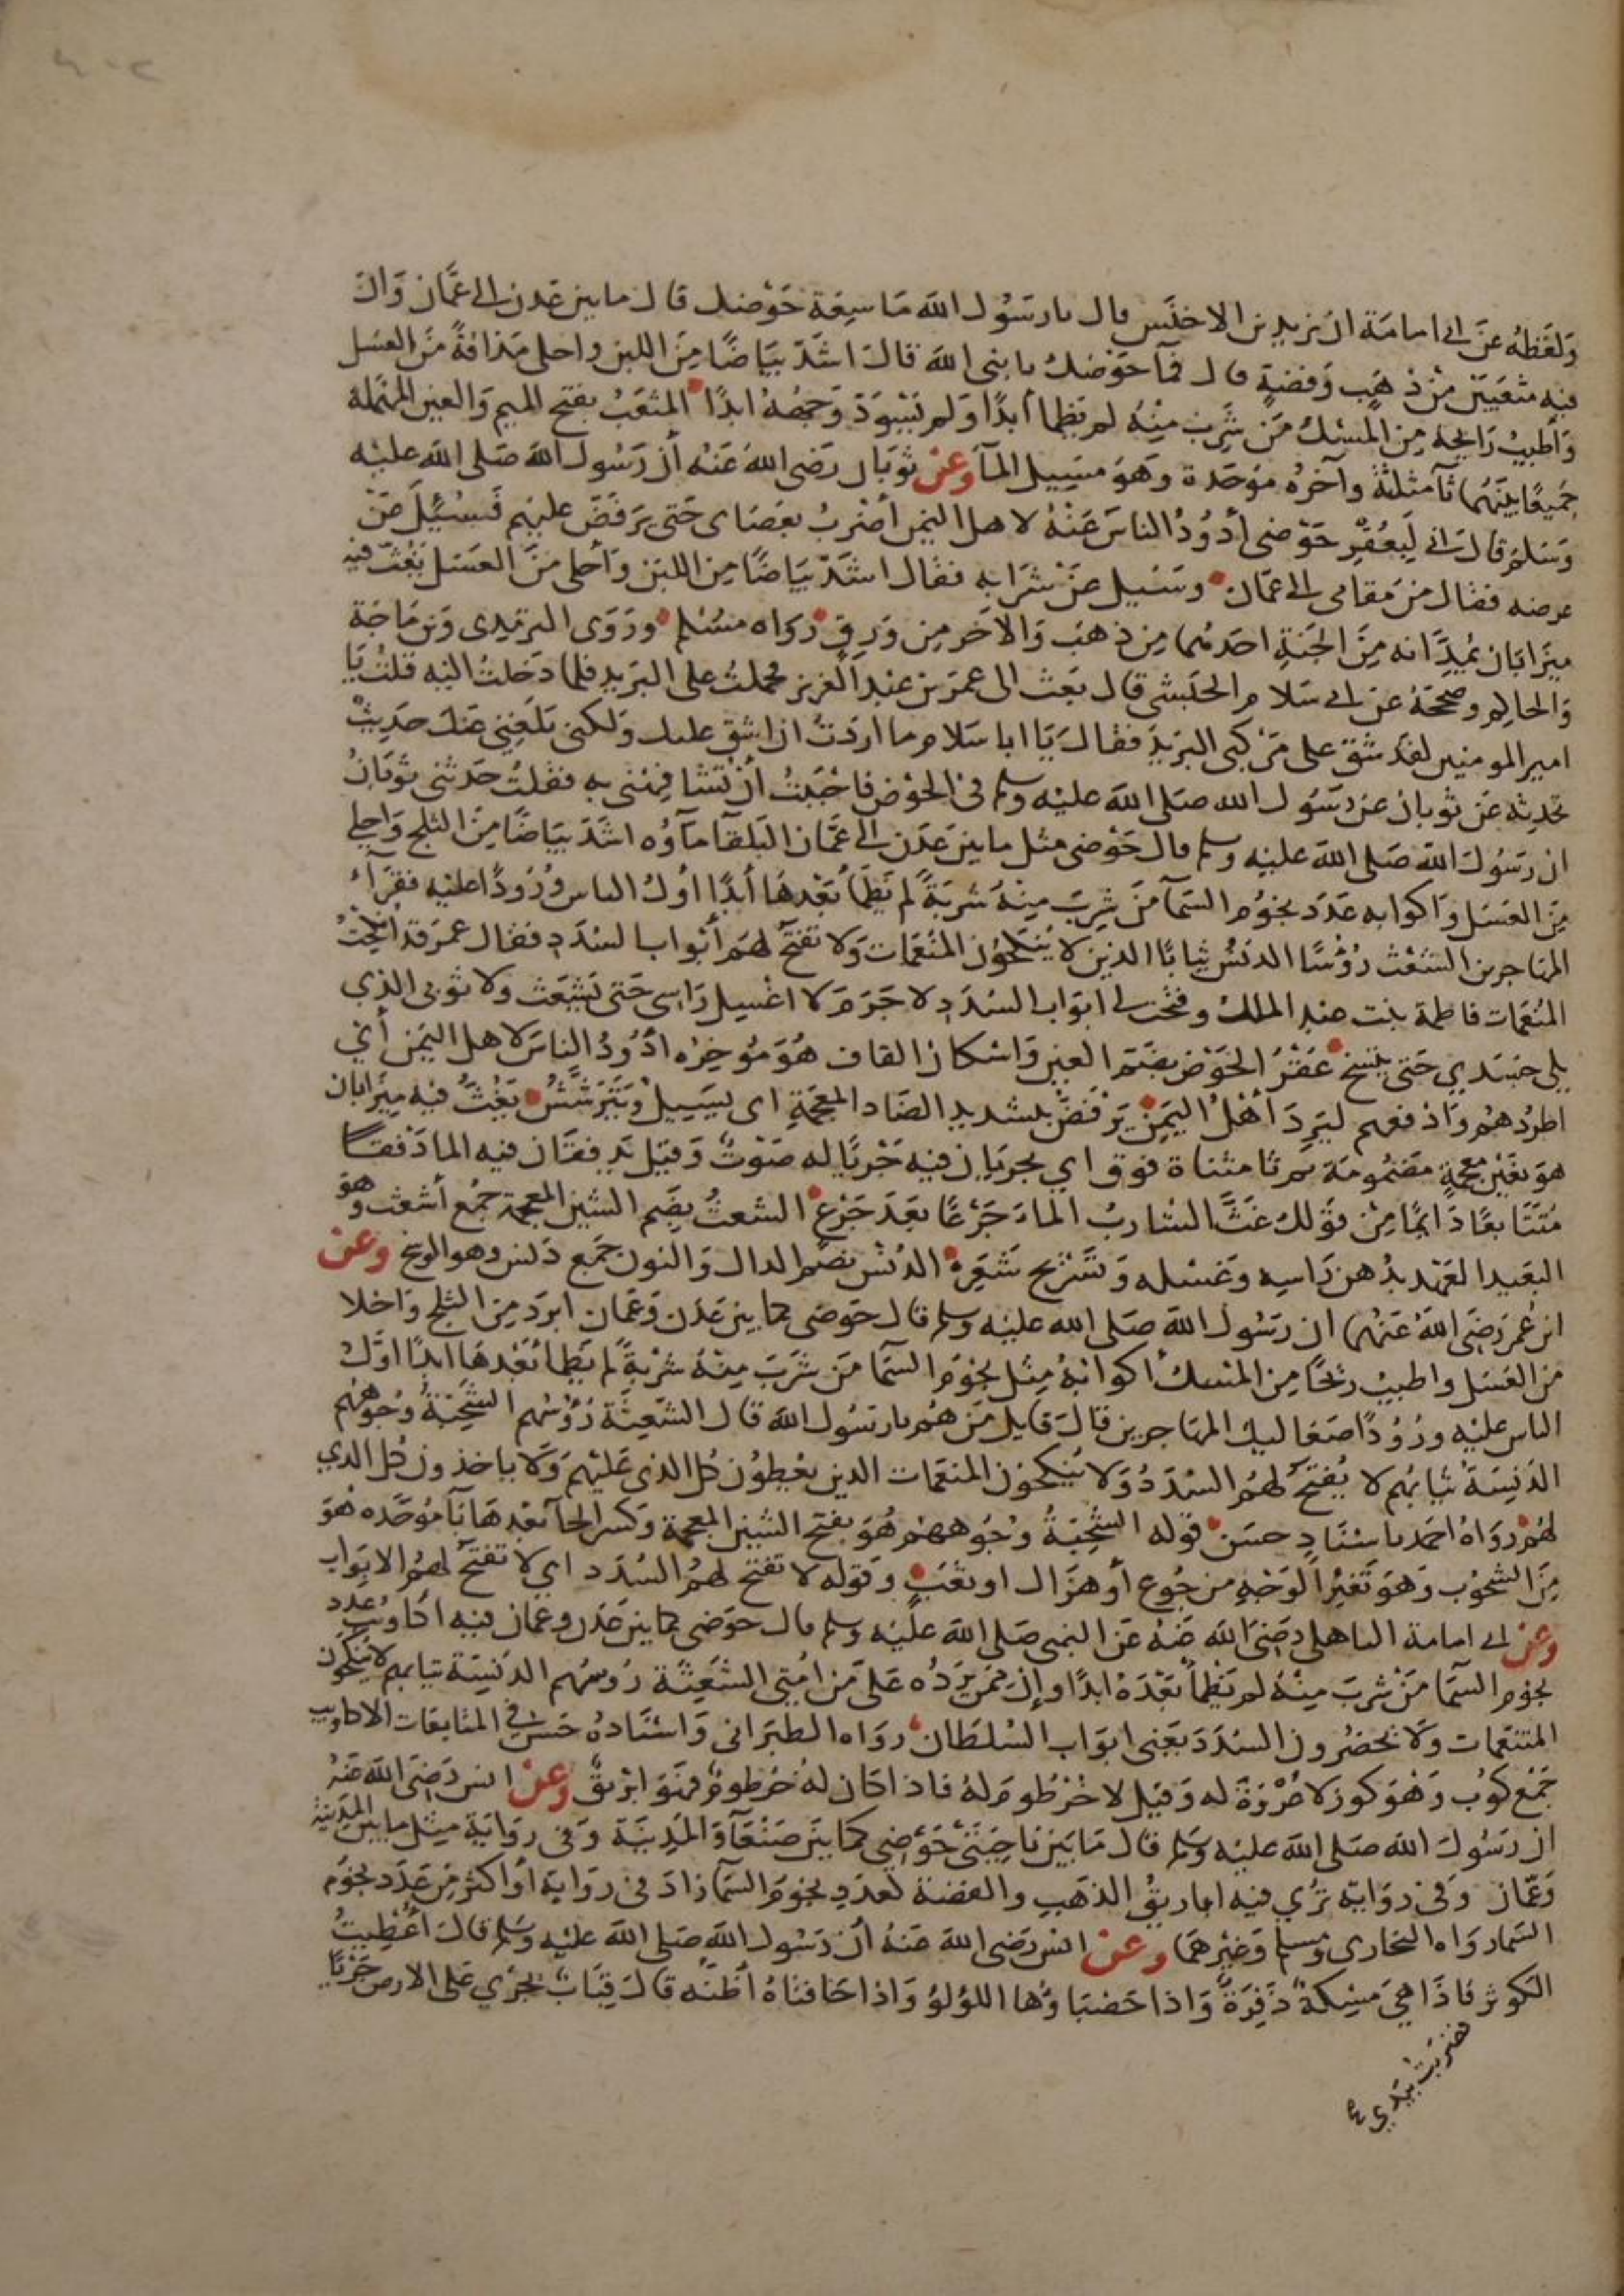 ولفظه عن ابي امامة ان يزيد بن الاخنس قال يا رسول الله ما سعة حوضك قال ما بين عدن الى عمان وان
فيه مثعبين من ذهب وفضة قال فما حوضك يا نبي الله قال اشد بياضا من اللبن واحلى مذاقة من العسل
واطيب رايحة من المسك من شرب منه لم يظما ابدا ولم يسود وجهه ابدا المثعب بفتح الميم والعين المهملة
جميعا بينهما ثاء مثلثة وآخره موحدة وهو مسيل الماء وعن ثوبان رضي الله عنه أن رسول الله صلى الله عليه
وسلم قال اني لبعقر حوضي أذود الناس عنه لاهل اليمن أضرب بعصاى حتى يرفض عليهم فسئل عن
عرضه فقال من مقامي الى عمان وسئيل عن شرابه فقال اشد بياضا من اللبن وأحلى من العسل يغث فيه
ميزابان يمدانه من الجنة احدهما من ذهب والاخر من ورق رواه مسلم وروى الترمذي وبن ماجة
والحاكم وصححه عن ابي سلام الحبشي قال بعث الى عمر بن عبد العزيز فحملت على البريد فلما دخلت اليه قلت يا
امير المومنين لقد شق على مركبي البريد فقال يا ابا سلام ما اردت ان اشق عليك ولكني بلغني عنك حديث
تحدثه عن ثوبان عن رسول الله صلى الله عليه وسلم في الحوض فاحببت أن تشافهني به فقلت حدثني ثوبان
ان رسول الله صلى الله عليه وسلم قال حوضي مثل ما بين عدن الى عمان البلقاء ماؤه اشد بياضا من الثلج واحلى
من العسل واكوابه عدد نجوم السماء من شرب منه شربة لم يظمأ بعدها أبدا اول الناس ورودا عليه فقراء
المهاجرين الشعث رؤسا الدنس ثيابا الذين لا ينكحون المنعمات ولا تفتح لهم أبواب السدد فقال عمر قد انكحت
المنعمات فاطمة بنت عبد الملك وفتحت لي ابواب السدد لا جرم لا اغسل راسي حتى تشعث ولا ثوبي الذي
يلي جسدي حتى يتسخ عقر الحوض بضم العين واسكان القاف هو موخره اذود الناس لاهل اليمن أي
اطردهم وادفعهم ليرد أهل اليمن يرفض بتشديد الضاد المعجمة اى يسيل ويترشش يغث فيه ميزابان
هو بغين معجمة مضمومة ثم تا مثناة فوق اي يجريان فيه جريا له صوت وقيل يدفقان فيه الما دفقا
متتابعا دايما من قولك غت الشارب الما جرعا بعد جرع الشعث بضم الشين المعجمة جمع أشعث وهو
البعيد العهد بدهن راسه وغسله وتسريح شعره الدنس بضم الدال والنون جمع دنس وهو الوسخ وعن
ابن عمر رضي الله عنهما ان رسول الله صلى الله عليه وسلم قال حوضي كما بين عدن وعمان ابرد من الثلج واحلا
من العسل واطيب ريحا من المسك أكوابه مثل نجوم السما من شرب منه شربة لم يظما بعدها ابدا اول
الناس عليه ورودا صعاليك المهاجرين قال قايل من هم يا رسول الله قال الشعثة رؤسهم الشحبة وجوههم
الدنسة ثيابهم لا يفتح لهم السدد ولا ينكحون المنعمات الدين يعطون كل الذي عليهم ولا ياخذون كل الدي
لهم رواه احمد باسناد حسن قوله الشحبة وجوههم هو بفتح الشين المعجمة وكسر الحاء بعدها باء موحده هو
من الشحوب وهو تغير الوجه من جوع أو هزال او تعب وقوله لا تفتح لهم السدد اي لا تفتح لهم الابواب
وعن ابي امامة الباهلي رضي الله عنه عن النبي صلى الله عليه وسلم قال حوضي كما بين عدن وعمان فيه اكاويب عدد
نجوم السما من شرب منه لم يظمأ بعده ابدا وإن ممن يرده على من امتي الشعثة روسهم الدنسة ثيابهم لا ينكحون
المتنعمات ولا يحضرون السدد يعني ابواب السلطان رواه الطبراني واسناده حسن في المتابعات الاكاويب
جمع كوب وهو كوز لا عروة له وقيل لا خرطوم له فاذا كان له خرطوم فهو ابريق وعن انس رضي الله عنه
ان رسول الله صلى الله عليه وسلم قال ما بين ناحيتي حوضي كما بين صنعاء والمدينة وفي رواية مثل ما بين المدينة
وعمان وفي رواية ترى فيه اباريق الذهب والفضة لعدد نجوم السما زاد في رواية أو اكثر من عدد نجوم
السما رواه البخارى ومسلم وغيرهما وعن انس رضي الله عنه أن رسول الله صلى الله عليه وسلم قال أعطيت
الكوثر فاذا هي مسكة ذفرة واذا حصباؤها اللؤلؤ واذا حافتاه أظنه قال قباب تجري على الارض جريا
فضربت بيدي